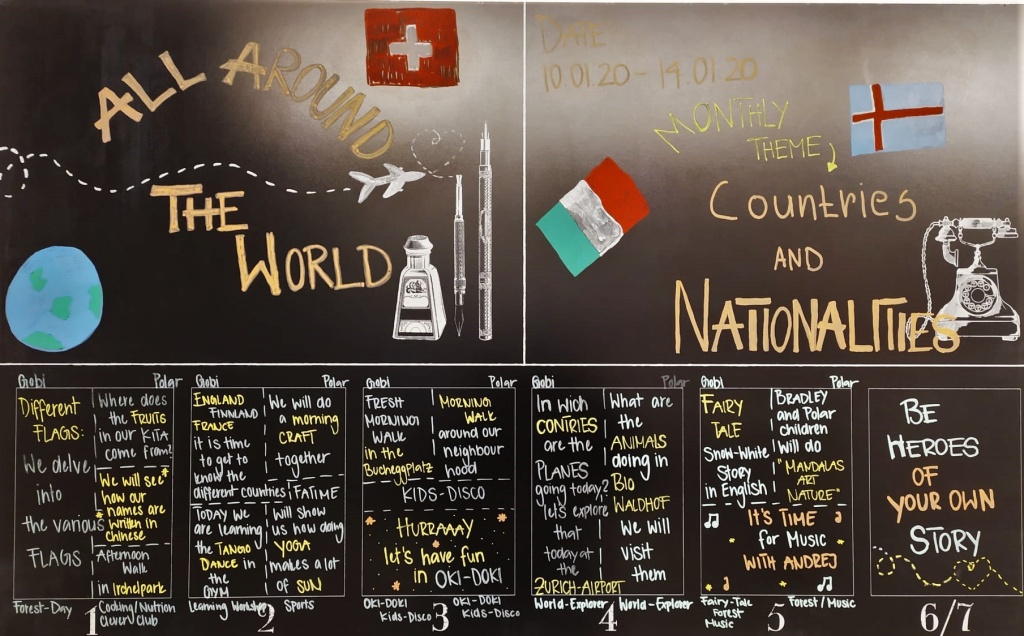 ALL AROUND
THE
WORLD
DATE:
10.01.20 - 14.01.20
MONTHLY
THEME
Countries
AND
NATIONALITIES
Gobi
Polar
Different
FLAGS:
We delve
into
the various
FLAGS
Where does
the FRUITS
in our KITA
come from?
We will see
how our
names are
written in
chinese
Afternoon
Walk
in Irchelpark
Forest-Day
Cooking/Nutrion
Clever Club
1
Gobi
Polar
ENGLAND
FINNLAND
FRANCE
it is time
to get to
know the
different countries
TODAY WE
are learning
the TANGO
DANCE in
the
GYM
We will do
a morning
CRAFT
together
FATIME
will show
us how doing
YOGA
makes a lot
of SUN
Learning Workshop
Sports
2
Gobi
Polar
FRESH
MORNING
WALK
in the
Bucheggplatz
MORNING
WALK
around our
neighbour
hood
KIDS-DISCO
HURRAAAY
let's have fun
in OKI-DOKI
OKI-DOKI
Kids-Disco
OKI-DOKI
Kids-Disco
3
Gobi
Polar
In wich
CONTRIES
are the
PLANES
going today?
let's explore
that
today at
the
ZURICH-AIRPORT
What are
the
ANIMALS
doing in
Bio
WALDHOF
We will
visit
them
World-Explorer
World-Explorer
4
Gobi
Polar
FAIRY
TALE
Snow-White
Story
in English
BRADLEY
and Polar
children
will do
"MANDALAS
ART
NATURE"
IT'S TIME
for Music
WITH ANDREJ
Fairy-Tale
Forest
Music
Forest/Music
5
BE
HEROES
OF
YOUR OWN
STORY
6/7